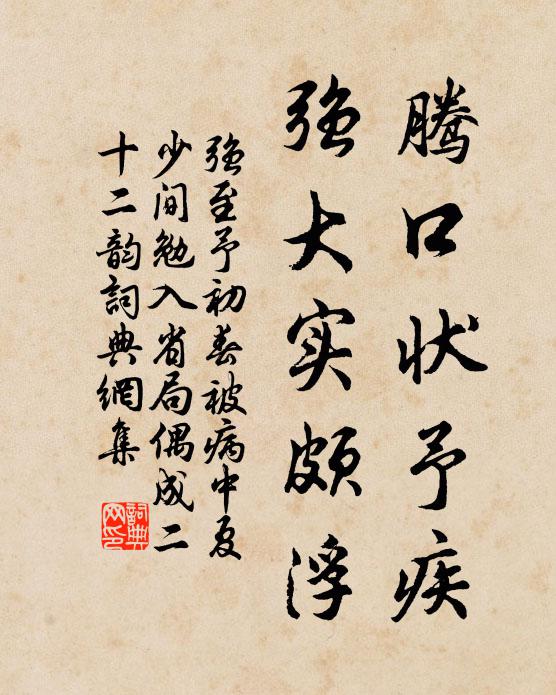 腾口状予疾
强大实颇浮
强至予初春被病中夏
少间勉入省局偶成二
十二韵詞典網集
詞典网印